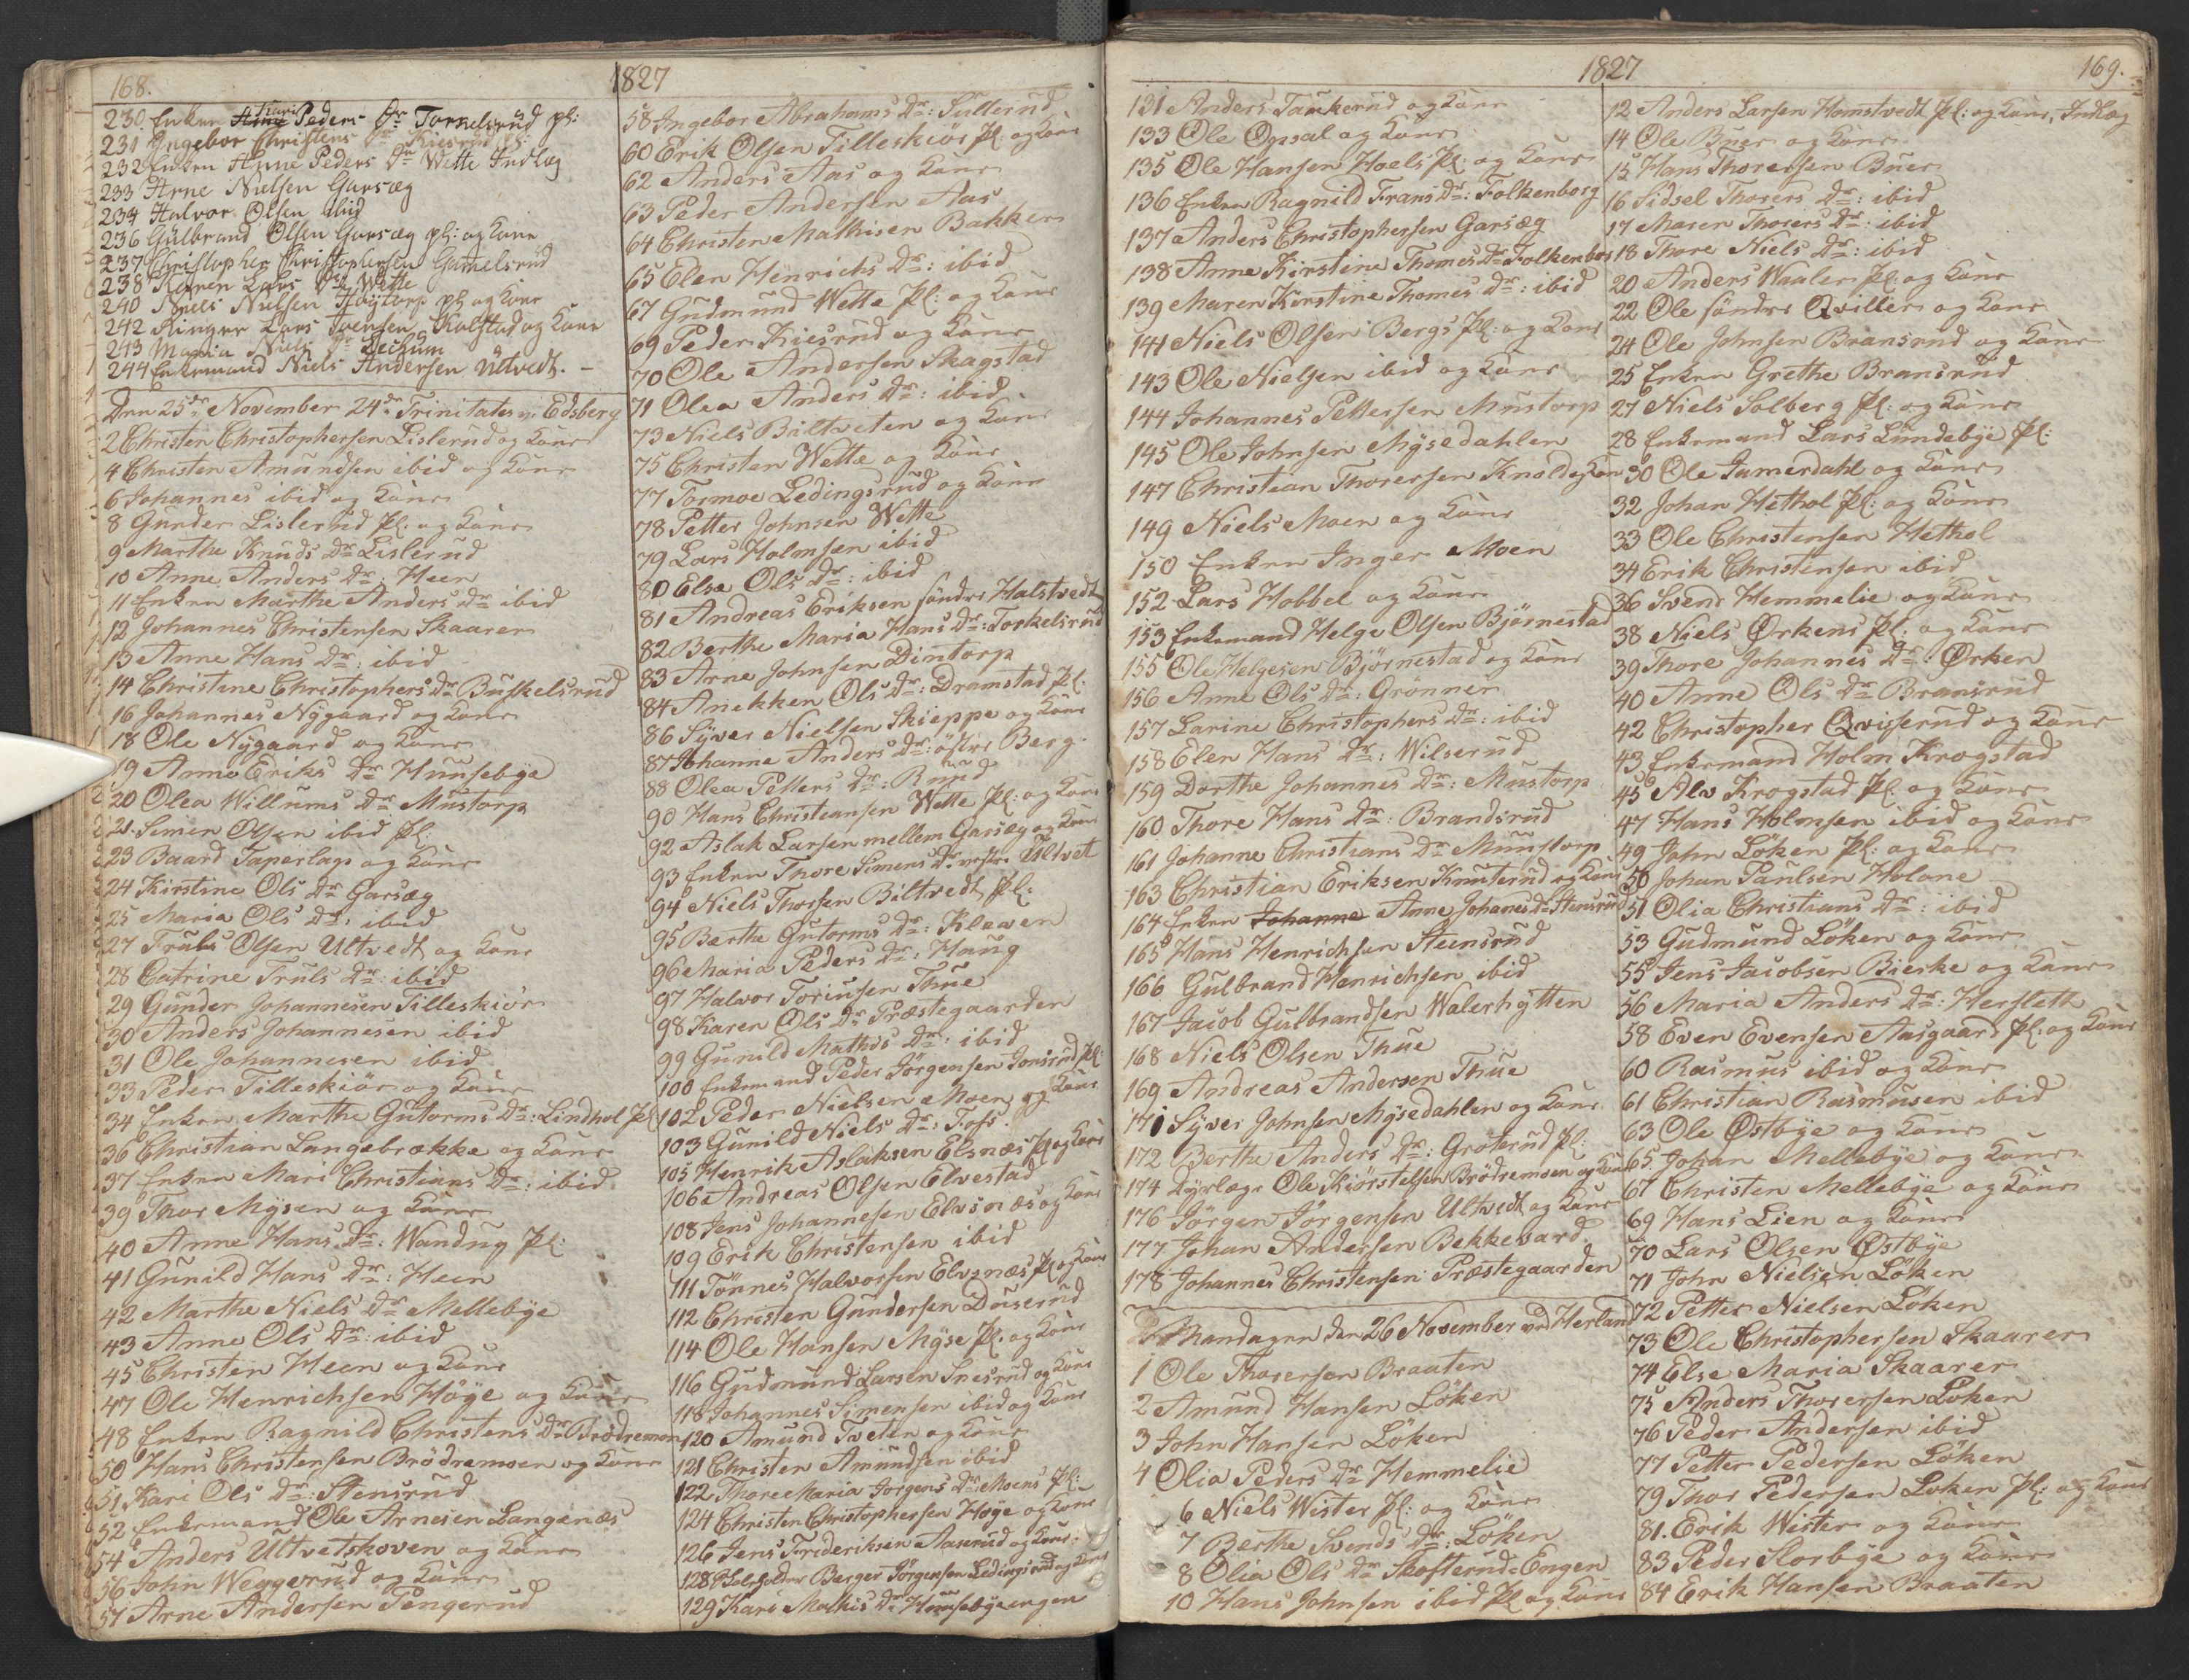 168.
1827
230 Enken Kari Peders Dr Tornelsrud pl:
231 Ingebor Christens Dr
232 Enken Anne Peders Dr Wette Indlæg
233 Arne Nielsen Garsæg
234 Halvor Olsen ibid
236 Gulbrand Olsen Garsæg pl: og Kone
237 Christopher Christophersen Gamelsrud
238 Karen Lars Dr Wette
240 Niels Nielsen Høytorp pl og Kone
242 Ringer Lars Svensen Kalstad og Kone
243 Maria Niels Dr
244 Enkemand Niels Andersen Ultvedt. -
Den 25de November 24de Trinitates in Edsberg
2 Christen Christophersen Lislerud og Kone
4 Christen Amundsen ibid og Kone
6 Johannes ibid og Kone
8 Gunder Lislerud Pl: og Kone
9 Marthe Knuds Dr Lislerud
10 Anne Anders Dr: Heen
11 Enken Marthe Anders Dr ibid
12 Johannes Christensen Skaaren
13 Anne Hans Dr: ibid
14 Christine Christophers Dr Buskelsrud
16 Johannes Nygaard og Kone
18 Ole Nygaard og Kone
19 Anne Eriks Dr Huusebye
20 Olea Willums Dr Mustorp
21. Simen Olsen ibid Pl:
23 Baard Taperlap og Kone
24 Kirstine Ols Dr Garsæg
25 Maria Ols Dr: ibid
27 Truls Olsen Ultvedt og Kone
28 Catrine Truls Dr: ibid
29 Gunder Johannesen Tilleskiør
30 Anders Johannesen ibid
31 Ole Johannesen ibid
33 Peder Tilleskiør og Kone
34 Enken Marthe Gutorms Dr: Lindhol Pl
36 Christian Langebrække og Kone
37 Enken Mari Christians Dr: ibid
39 Thor Mysen og Kone
40 Anne Hans Dr: Wandug Pl:
41 Gunild Hans Dr: Heen
42 Marthe Niels Dr Mellebye
43 Anne Ols Dr: ibid
45 Christen Heen og Kone
47 Ole Henrichsen Høye og Kone
48 Enken Ragnild Christens Dr Brødremoen
50 Hans Christensen Brødremoen og Kone
51 Kari Ols Dr: Stensrud
52 Enkemand Ole Arnesen Langenæs
54 Anders Ultvetskoven og Kone
56 John Weggerud og Kone
57 Arne Andersen Tengerud
58 Ingebor Abrahams Dr: Sullerud
60 Erik Olsen Tilleskiør Pl og Kone
62 Anders Aas og Kone
63 Peder Andersen Aas
64 Christen Mathisen Bakken
65 Elen Henrichs Dr: ibid
67 Gudmund Wette Pl: og Kone
69 Peder Kiesrud og Kone
70 Ole Andersen Skagstad
71 Olea Anders Dr: ibid
73 Niels Biltveten og Kone
75 Christen Wette og Kone
77 Tormoe Ledingsrud og Kone
78 Petter Johnsen Wette
79 Lars Holmsen ibid
80 Else Ols Dr: ibid
81 Andreas Eriksen søndre Halstvedt
82 Berthe Maria Hans Dr: Torkelsrud
83 Arne Johnsen Dintorp
84 Anekken Ols Dr: Dramstad Pl:
86 Syver Nielsen Skieppe og Kone
87 Johanne Anders Dr: østre Berg
88 Olea Petters Dr: Ruud
90 Hans Christiansen Wette Pl: og Kone
92 Aslak Larsen mellem Garsæg og Kone
93 Enken Thore Simens Dr vestre Ultvet
94 Niels Thorsen Biltvedt Pl:
95 Berthe Gutorms Dr: Kleven
96 Maria Peders Dr: Haug
97 Halvor Toriusen Thue
98 Karen Ols Dr Præstegaarden
99 Gunild Mathis Dr: ibid
100 Enkemand Peder Jørgensen Jonsrud Pl:
102 Peder Nielsen Moen og Kone
103 Gunild Niels Dr: Fofs
105 Henrik Aslaksen Elsnæs Pl og Kone
106 Andreas Olsen Elvestad
108 Jens Johannesen Elvsnæs og Kone
109 Erik Christensen ibid
111 Tønnes Halvorsen Elvsnæs Pl og Kone
112 Christen Gundersen Duserud
114 Ole Hansen Myse Pl: og Kone
116 Gudmund Larsen Snesrud og Kone
118 Johannes Simensen ibid og Kone
120 Amund Tveten og Kone
121 Christen Amundsen ibid
122 Thore Maria Jorgens Dr: Moens Pl:
124 Christen Christophersen Høye og Kone
126 Jens Frideriksen Aaserud og Kone
128 Berger Jørgensen Ledingsrud og Kone
129 Kari Mathis Dr Huusebyeengen
1827
169.
131 Anders Taukerud og Kone
133 Ole Opsal og Kone
135 Ole Hansen Hoels Pl: og Kone
136 Enken Ragnild Frans Dr: Folkenborg
137 Anders Christophersen Garsæg
138 Anne Kirstine Thomes Dr Folkenborg
139 Maren Kirstine Thomes Dr: ibid
141 Niels Olsen Bergs Pl: og Kone
143 Ole Nielsen ibid og Kone
144 Johannes Pettersen Mustorp
145 Ole Johnsen Mysedahlen
147 Christian Thoresen Knold og Kone
149 Niels Moen og Kone
150 Enken Inger Moen
152 Lars Hobbel og Kone
153 Enkemand Helge Olsen Bjørnestad
155 Ole Helgesen Bjørnestad og Kone
156 Anne Ols Dr: Grønner
157 Larine Christophers Dr: ibid
158 Elen Hans Dr: Wilserud
159 Dorthe Johannes Dr: Mustorp
160 Thore Hans Dr: Brandsrud
161 Johanne Christians Dr Muustorp
163 Christian Eriksen Knuterud og Kone
164 Enken Johanne Anne Johanes Dr Stensrud
165 Hans Henrichsen Steensrud
166 Gulbrand Henrichsen ibid
167 Jacob Gulbrandsen Walerhytten
168 Niels Olsen Thue
169 Andreas Andersen Thue
171 Syver Johnsen Mysedahlen og Kone
172 Berthe Anders Dr: Grøterud Pl:
174 Dyrlæge Ole Kiørstelsen Brødremoen og Kone
176 Jørgen Jørgensen Ultvedt og Kone
177 Johan Andersen Bekkevard
178 Johannes Christensen Præstegaarden
Mandagen den 26 November ved Herland
1 Ole Thoresen Braaten
2 Amund Hansen Løken
3 John Hansen Løken
4 Olia Peders Dr Hemmelie
6 Niels Wister Pl: og Kone
7 Berthe Svends Dr: Løken
8 Olia Ols Dr Skofterud-Engen
10 Hans Johnsen ibid Pl og Kone
12 Anders Larsen Homstvedt Pl: og Kone, Indlæg
14 Ole Buer og Kone
15 Hans Thoresen Buer
16 Sidsel Thorers Dr: ibid
17 Maren Thorers Dr: ibid
18 Thore Niels Dr: ibid
20 Anders Waaler Pl: og Kone
22 Ole søndre Qviller og Kone
24 Ole Johnsen Bransrud og Kone
25 Enken Grethe Bransrud
27 Niels Solberg Pl: og Kone
28 Enkemand Lars Lundebye Pl:
30 Ole Jamerdahl og Kone
32 Johan Hethol Pl: og Kone
33 Ole Christensen Hethol
34 Erik Christensen ibid
36 Svend Hemmelie og Kone
38 Niels Ørkens Pl: og Kone
39 Thore Johannes Dr: Ørken
40 Anne Ols Dr Bransrud
42 Christopher Qvisserud og Kone
43 Enkemand Holm Krogstad
45 Alv Krogstad Pl: og Kone
47 Hans Holmsen ibid og Kone
49 John Løken Pl: og Kone
50 Johan Paulsen Holone
51 Olia Christians Dr: ibid
53 Gudmund Løken og Kone
55 Jens Jacobsen Bierke og Kone
56 Maria Anders Dr: Hersleth
58 Even Evensen Aasgaard Pl: og Kone
60 Rasmus ibid og Kone
61 Christian Rasmusen ibid
63 Ole Østbye og Kone
65. Johan Mellebye og Kone
67 Christen Mellebye og Kone
69 Hans Lien og Kone
70 Lars Olsen Østbye
71 John Nielsen Løken
72 Petter Nielsen Løken
73 Ole Christophersen Skaarer
74 Else Maria Skaarer
75 Anders Thorersen Løken
76 Peder Andersen ibid
77 Petter Pedersen Løken
79 Thor Pedersen Løken Pl: og Kone
81. Erik Wister og Kone
83 Peder Slorbye og Kone
84 Erik Hansen Braaten